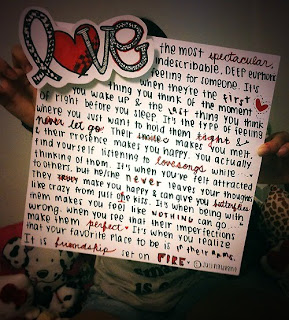 LOVE
the most spectacular,
indescribable, DEEP euphoric
feeling for someone. It's
when they're the first
thing you think of the moment
you wake up & the last thing you think
of right before you sleep. It's the type of feeling
where you just want to hold them tight &
never let go. Their smile makes you melt,
& their presence makes you happy. You actually
find yourself listening to lovesongs while
thinking of them. It's when you've felt attracted
to others, but he/she never leaves your thoughts
they truly make you happy & can give you butterflies
like crazy from just one kiss. It's when being with
them makes you feel like NOTHING can go
wrong. when you see that their imperfections
make them perfect. It's when you realize
that your favorite place to be is in their arms.
It is friendship set on FIRE.